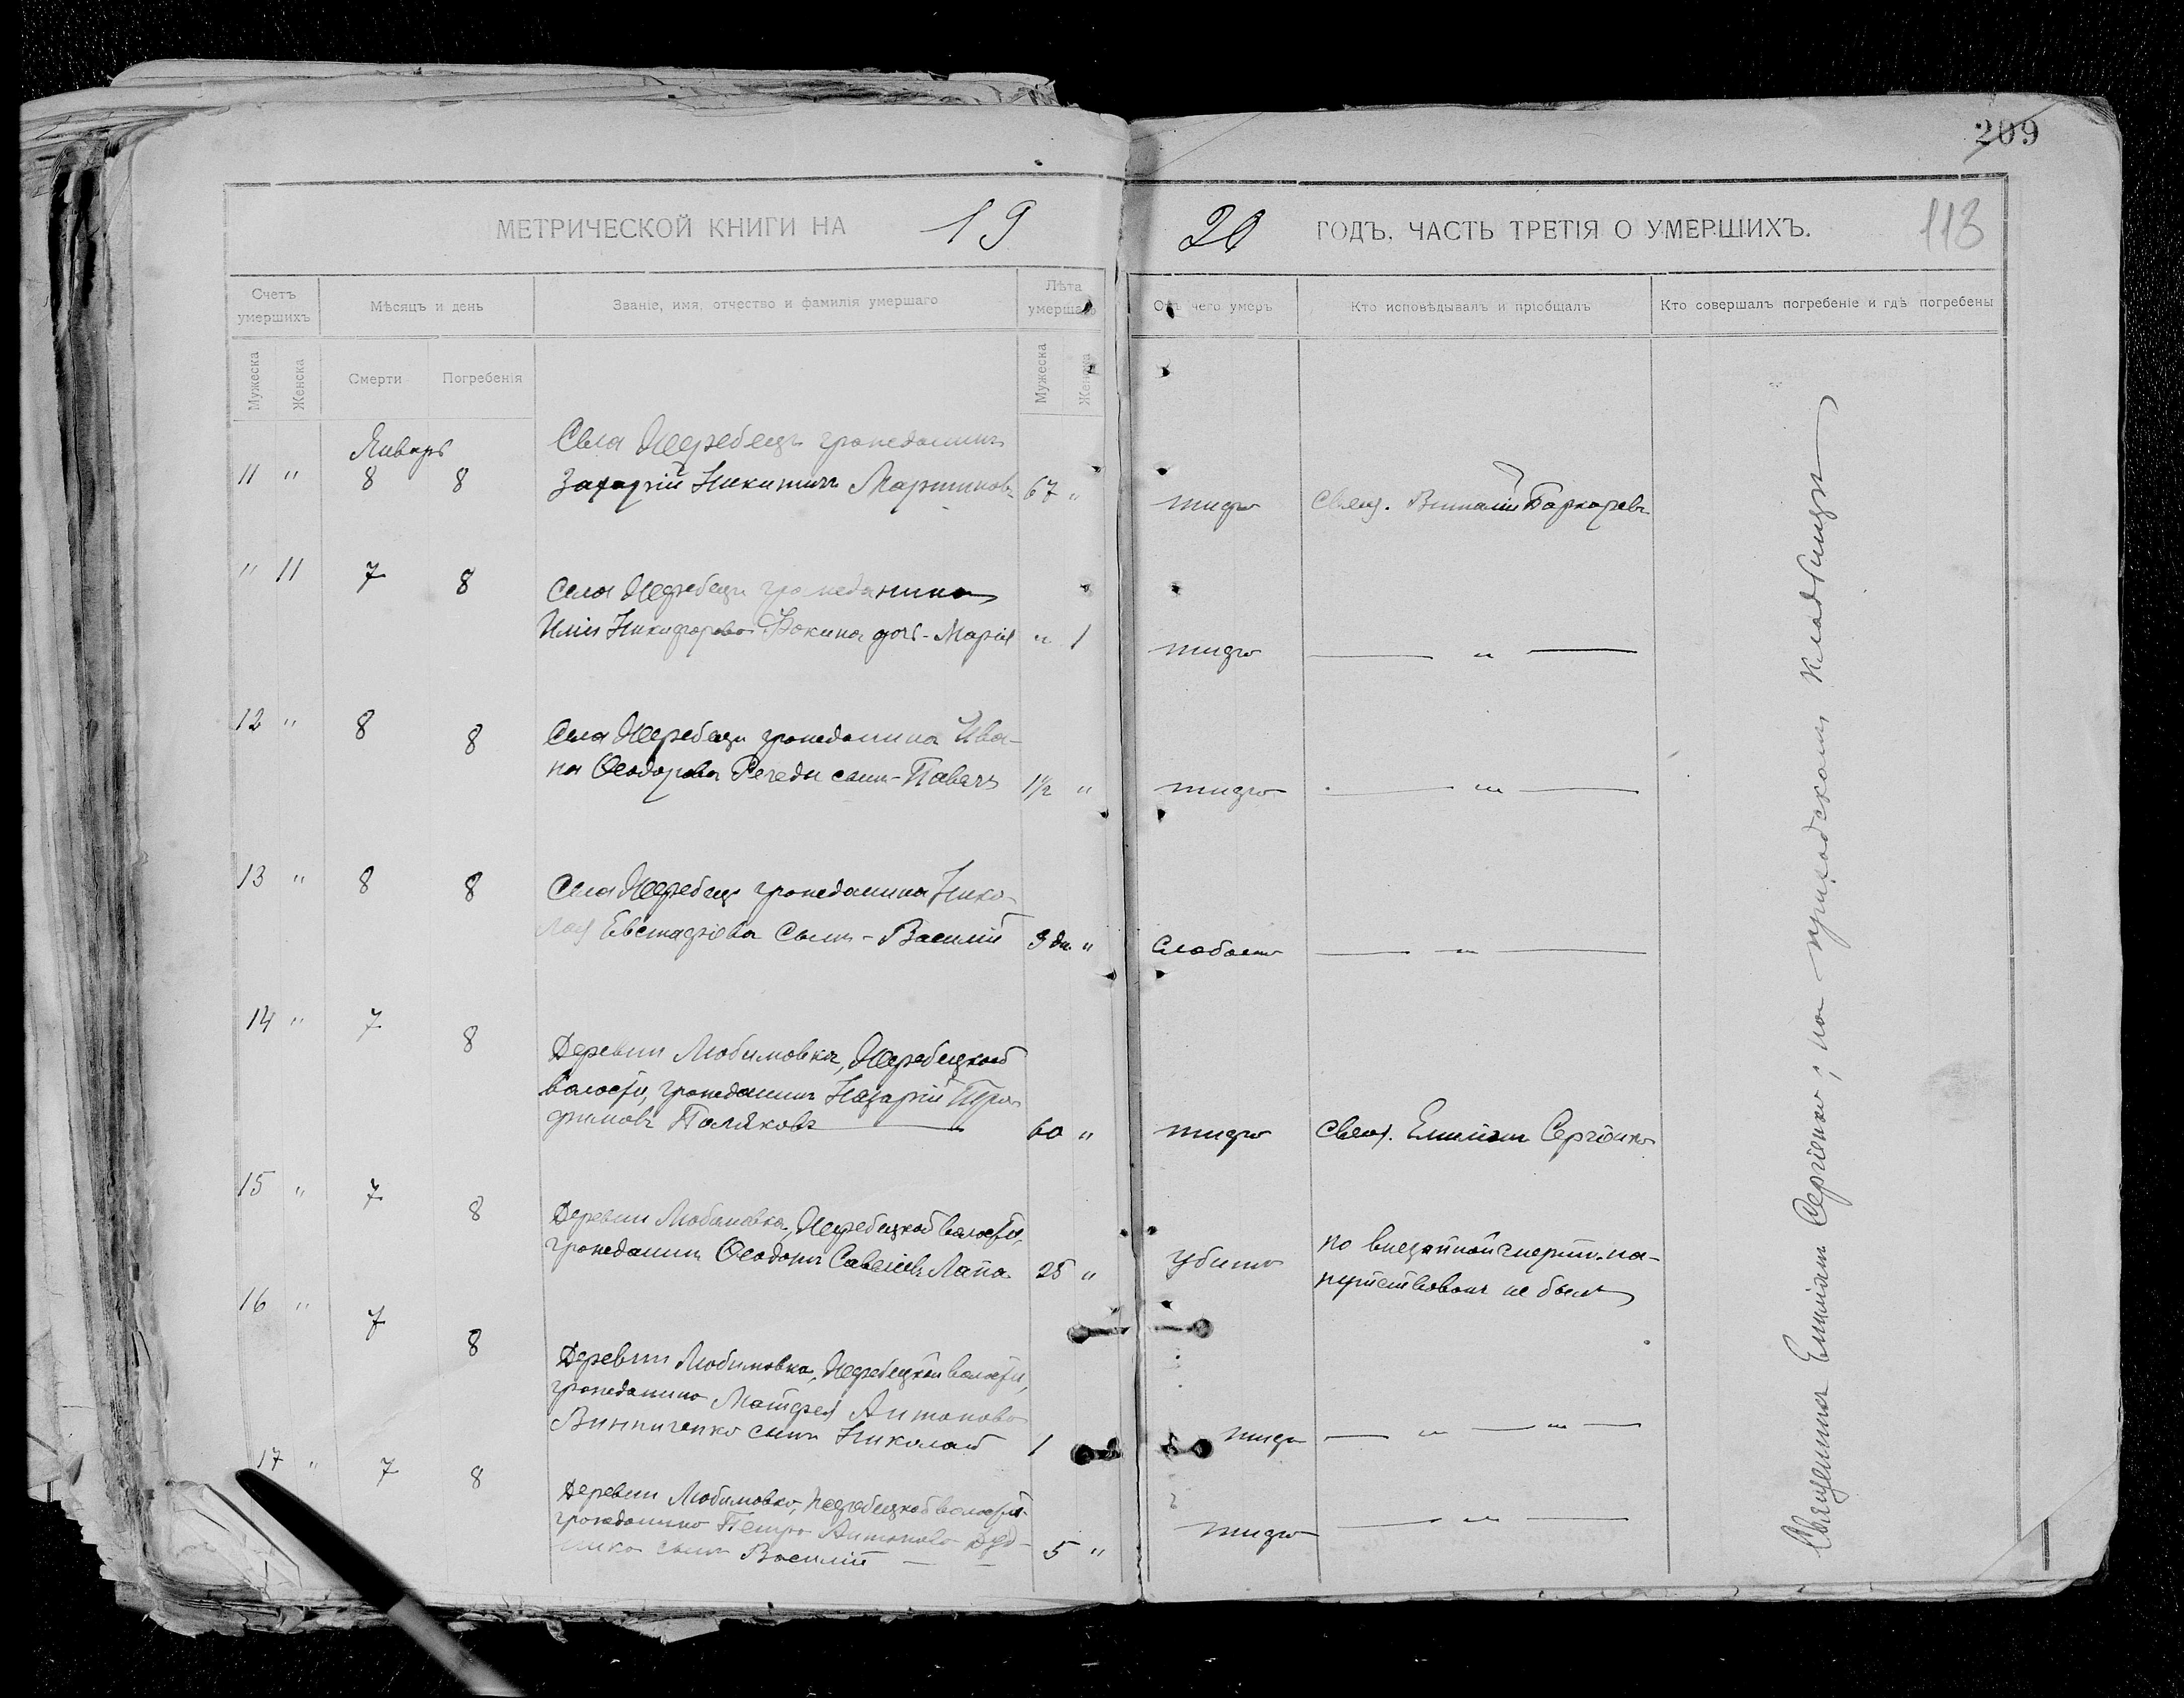 209
МЕТРИЧЕСКОЙ КНИГИ НА 19
20 ГОДЪ, ЧАСТЬ ТРЕТІЯ О УМЕРШИХЪ.
113
Счетъ умершихъ
Мѣсяцъ и день
Званіе, имя, отчество и фамилія умершаго
Лѣта умершаго
Отъ чего умеръ
Кто исповѣдывалъ и пріобщалъ
Кто совершалъ погребеніе и гдѣ погребены
Мужеска
Женска
Смерти
Погребенія
Мужеска
Женска
Январь
Села Жеребецъ гражданинъ
11 " 8 8 Захарій Никитинъ Мартиновъ 67 " тифъ Свящ. Виталій
" 11 7 8 Села Жеребецъ гражданина
Иліи Никифорова Фокина дочь - Марія " 1 тифъ — " —
12 " 8 8 Села Жеребецъ гражданина Ива-
на Ѳеодорова сынъ - Павелъ 1½ " тифъ — " —
13 " 8 8 Села Жеребецъ гражданина Нико-
лая Евстафіева сынъ - Василій 3 дн. " слабость — " —
14 " 7 8 Деревни Любимовка, Жеребецкой
волости, гражданинъ Назарій Тро-
фимовъ Поляковъ 60 " тифъ Свящ. Емиліанъ Сергіенко
15 " 7 8 Деревни Любимовка, Жеребецкой волости,
гражданинъ Ѳеодоръ Савеліевъ Лапа 28 " убитъ по внезапной смерти на-
путствованъ не былъ
16 " 7 8 Деревни Любимовка, Жеребецкой волости,
гражданина Матфея Антонова
Винниченко сынъ Николай 1 тифъ — " — " —
17 " 7 8 Деревни Любимовка, Жеребецкой волости
гражданина Петра Антонова Дуд-
сынъ Василій 5 " тифъ — " —
Священникъ Емиліанъ Сергіенко; на приходскомъ кладбищѣ